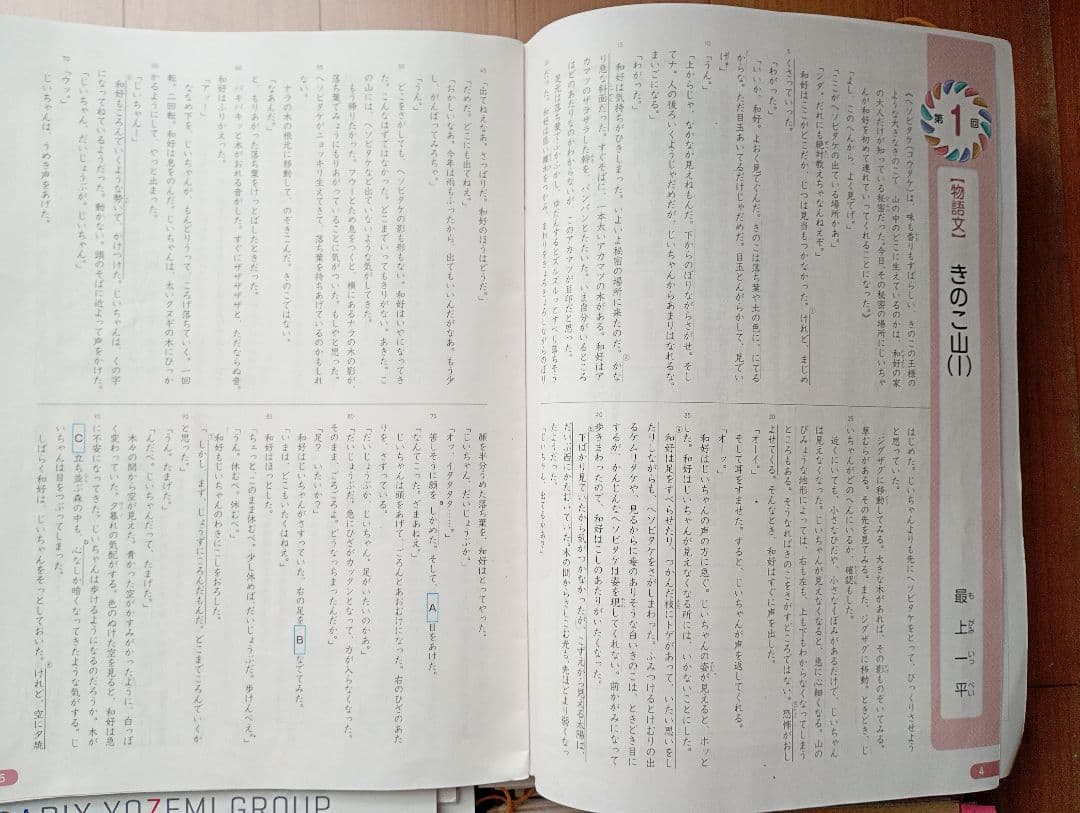 第1回
【物語文】 きのこ山(1)
最上一平
もがみいっぺい
《ヘソビタケ(コウタケ)は、味も香りもすばらしい、きのこの王様の
ような大きなきのこで、山の中のどこに生えているのかは、和好の家
の大人だけが知っている秘密だった。今日、その秘密の場所にじいちゃ
んが和好を初めて連れていってくれることになった。》
「よし、このへんから、よく見てげ。」
「ここがヘソビタケの出ている場所かあ。」
「ンダ。だれにも絶対教えちゃなんねえぞ。」
和好はここがどこだか、じつは見当もつかなかった。けれど、まじめ
くさっていった。
「わかった。」
「いいか、和好。よおく見てぐんだ。きのこは落ち葉や土の色に、にてる
からな。ただ目玉あいてるだけじゃだめだ。目玉とんがらかして、見てい
げ。」
「うん。」
「上からじゃ、なかなか見えねもんだ。下からのぼりながらさがせ。そし
てナ。人の後ろいくようじゃだめだが、じいちゃんからあまりはなれるな。
まいごになる。」
「わかった。」
和好は気持ちがひきしまった。いよいよ秘密の場所に来たのだ。かな
り急な斜面だった。すぐそばに、一本太いアカマツの木がある。和好はア
カマツのザラザラした幹を、バンバンとたたいた。いま自分がいるところ
はどのあたりなのかわからないが、このアカマツが目印だと思った。
足元は落ち葉でふかふかし、ゆだんするとズルズルっとすべり落ちそう
はじめた。じいちゃんよりも先にヘソビタケをとって、びっくりさせよう
と思っていた。
ジグザグに移動してみる。大きな木があれば、その影ものぞいてみる。
草むらがある。その先を見てみる。また、ジグザグに移動。ときどき、じ
いちゃんがどのへんにいるか、確認もした。
近くにいても、小さなひだや、小さなくぼみがあるだけで、じいちゃん
は見えなくなった。じいちゃんが見えなくなると、急に心細くなる。山の
びみょうな地形によっては、右も左も、上も下もわからなくなってしまう
ところもある。そうなればきのこをさがすどころではない。恐怖がおし
よせてくる。そんなとき、和好はすぐに声を出した。
「オーイ。」
そして耳をすませた。すると、じいちゃんが声を返してくれる。
「オッ。」
和好はじいちゃんの声の方に急ぐ。じいちゃんの姿が見えると、ホッと
した。和好はじいちゃんが見えなくなる所には、いかないことにした。
和好は足をすべらせたり、つかんだ枝にトゲがあって、いたい思いをし
たりしながらも、ヘソビタケをさがしまわった。ふみつけるとけむりの出
るケムリタケや、見るからに毒のありそうな白いきのこは、ときどき目に
するが、かんじんなヘソビタケは姿を現してくれない。前かがみになって
歩きまわったので、和好はこしのあたりがいたくなった。
下ばかり見ていたから気がつかなかったが、こずえから見える太陽は、
だいぶ西にかたむいていた。木の間からさしこむ光も先ほどより弱くなっ
たようだった。
「じいちゃん、出てるかあ?」
4
「出てねえなあ、さっぱりだ。和好のほうはどうだ。」
「だめだ。どこにも出てねえ。」
「おかしいなあ。今年は雨もふったから、出てもいいんだがなあ。もう少
し、がんばってみろちゃ。」
「うん。」
どこをさがしても、ヘソビタケの影も形もない。和好はいやになってき
た。こんなはずではなかった。どこまでいってもきりがない。あきた。こ
の山には、ヘソビタケなど出ていないような気がしてきた。
もう帰りたかった。フウーとため息をつくと、横にあるナラの木の影が、
落ち葉でみょうにもりあがっていることに気がついた。もしやと思った。
ヘソビタケがニョッキリ生えてきて、落ち葉を持ちあげているのかもしれ
ない。
ナラの木の根元に移動して、のぞきこんだ。きのこではない。
「なあんだ。」
と、もりあがった落ち葉をけっとばしたときだった。
バキバキッと木がおれる音がした。すぐにザザザザと、ただならぬ音。
和好はふりかえった。
「アッ！」
ななめ下を、じいちゃんが、もんどりうって、ころげ落ちていく。一回
転、二回転。和好は息をのんだ。じいちゃんは、太いタヌギの木にひっか
かるようにして、やっと止まった。
「じいちゃんー」
和好もころんでいくような勢いで、かけつけた。じいちゃんは、くの字
になってねているようだった。動かない。頭のそばに近よって声をかけた。
「じいちゃん、だいじょうぶが。じいちゃん。」
「ウッ。」
じいちゃんは、うめき声をあげた。
顔を半分うめた落ち葉を、和好はとってやった。
「じいちゃん、だいじょうぶか。」
「オッ、イタタタタ……。」
苦しそうに顔を、しかめた。そして、A目をあけた。
「こりゃ、なんたらざまあねえ。」
じいちゃんは頭をあげて、ごろんとあおむけになった。右のひざのあた
りを、さすっている。
「だいじょうぶか、じいちゃん。足がいたいのかあ。」
「だいじょうぶだ。急にひざがカックンとなって、力が入らなくなった。
そのまま、ごろごろよ。どうなっちまったんだか。」
「足？ いたいか？」
和好はじいちゃんがさすっていた、右の足をBなでてみた。
「いまは、どこもいたくはねえ。」
和好はほっとした。
「ちょっと、このまま休むべ。少し休めば、だいじょうぶだ。歩けんべえ。」
「うん。休むべ、休むべ。」
和好もじいちゃんのわきにこしをおろした。
「しかし、まず、じょうずにころんだもんだ。どこまでころんでいくか
と思った。」
「うん。たまげた。」
「んだべ。じいちゃんだって、たまげた。」
木々の間から空が見えた。青かった空がかすみがかったように、白っぽ
く変わっていた。夕暮れの気配がする。色のぬけた空を見ると、和好は急
に不安になってきた。じいちゃんは歩けるようになるのだろうか。木が
C立ち並ぶ森の中も、心なしか暗くなってきたような気がする。じ
いちゃんは目をつぶってしまった。
しばらく和好は、じいちゃんをそっとしておいた。けれど、空に夕焼
5
YOZEMI GROUP